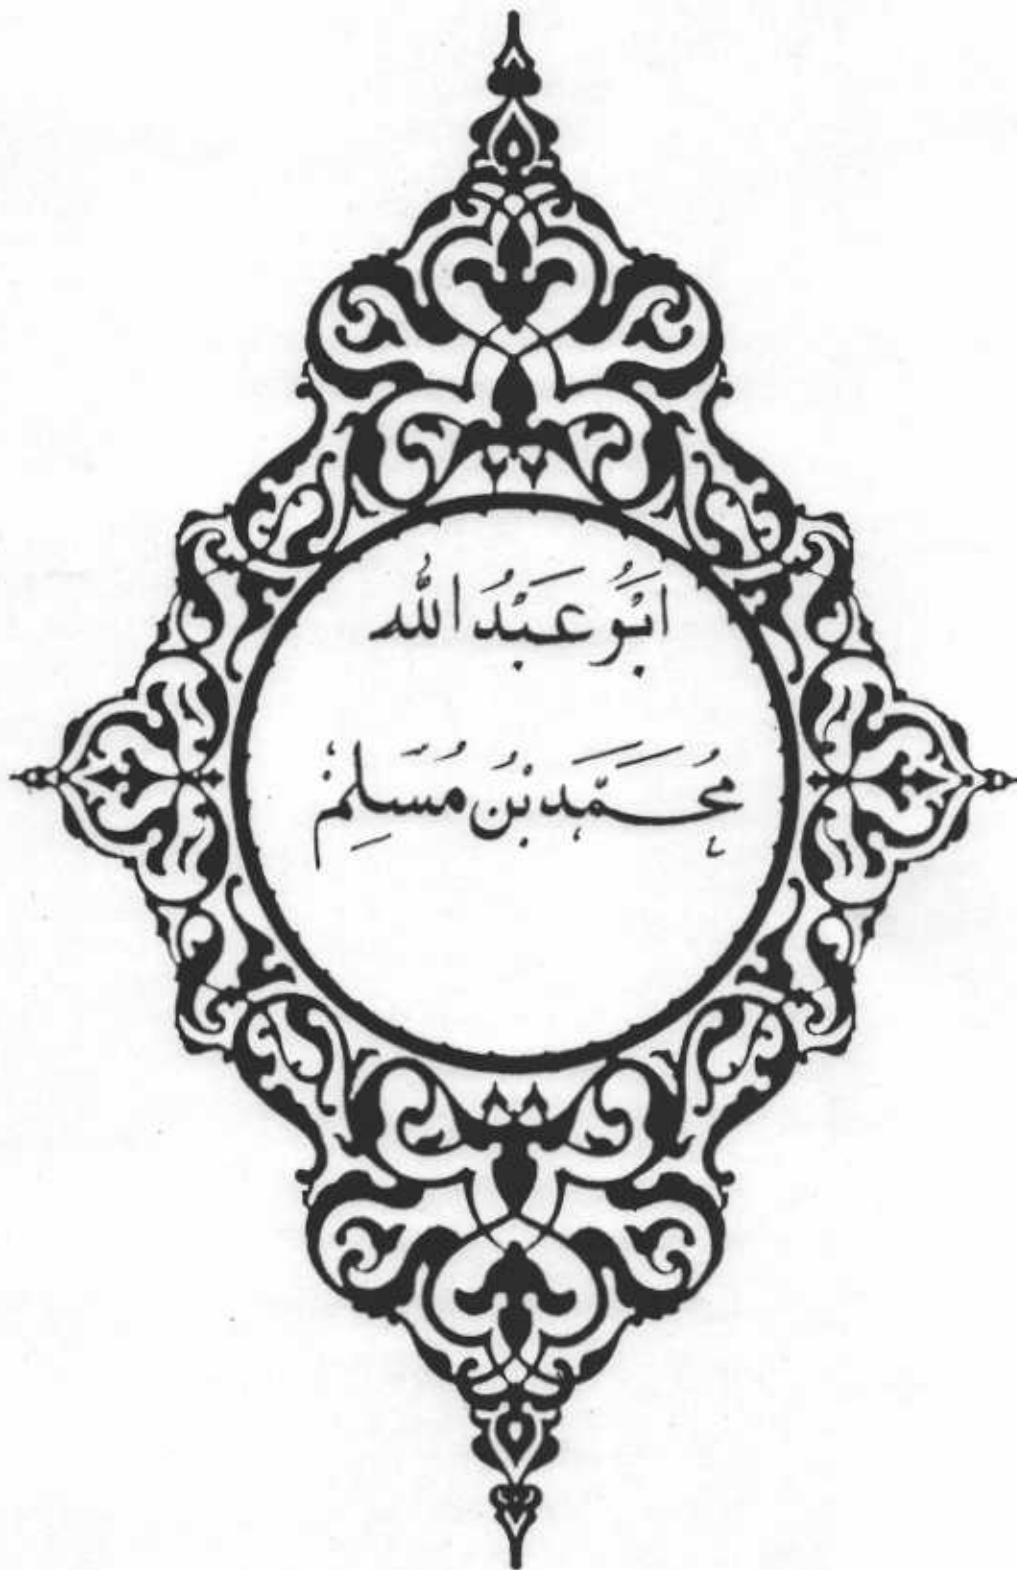 ابَُوْ عَبْدُ اللّٰه
مُحَمَّد بْنُ مُسَلِمْ